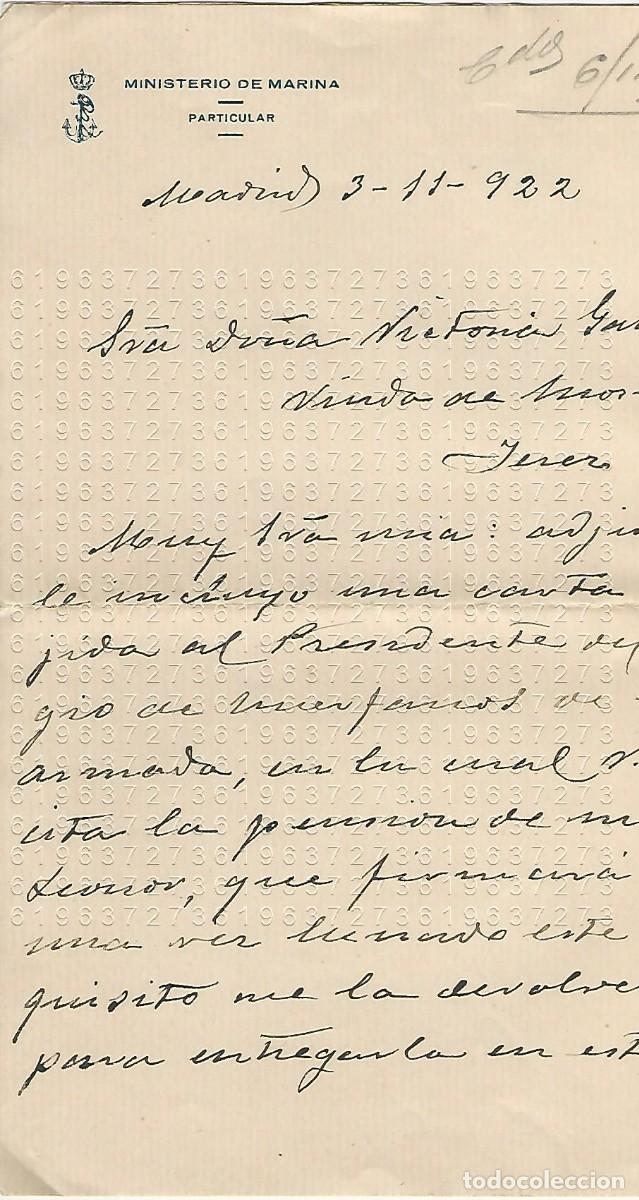 MINISTERIO DE MARINA
PARTICULAR
Cdo 6/11
Madrid 3-11-922
Sra Doña Victoria Gar
Viuda de Mor-
Jerez
Muy Sra mia: adju
le incluyo una carta
jida al Presidente del
gio de huerfanos de
armada, en la cual V.
cita la pension de su
Leonor, que firmará
una vez llenado este
quisito me la devolve
para entregarla en est
6196372736196372736196372 73
todocoleccion